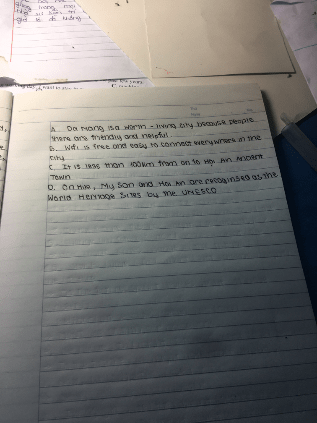 A. Da Nang is a worth - living city because people
there are friendly and helpful.
B. Wifi is free and easy to connect everywhere in the
city
C. It is less than 100km from on to Hoi An Ancient
Town
D. On Hue, My Son and Hoi An are recoginsed as the
World Heritage Sites by the UNESCO